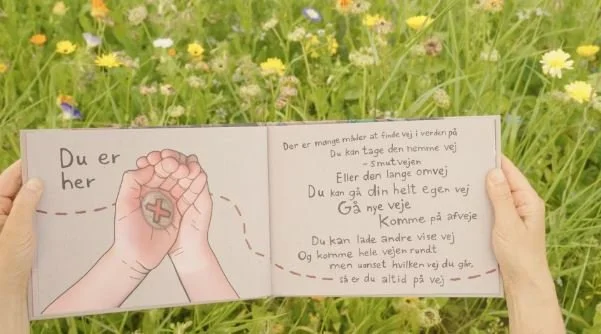 Du er
her
Der er mange måder at finde vej i verden på
Du kan tage den nemme vej
- smutvejen
Eller den lange omvej
Du kan gå din helt egen vej
Gå nye veje
Komme på afveje
Du kan lade andre vise vej
Og komme hele vejen rundt
men uanset hvilken vej du går,
så er du altid på vej